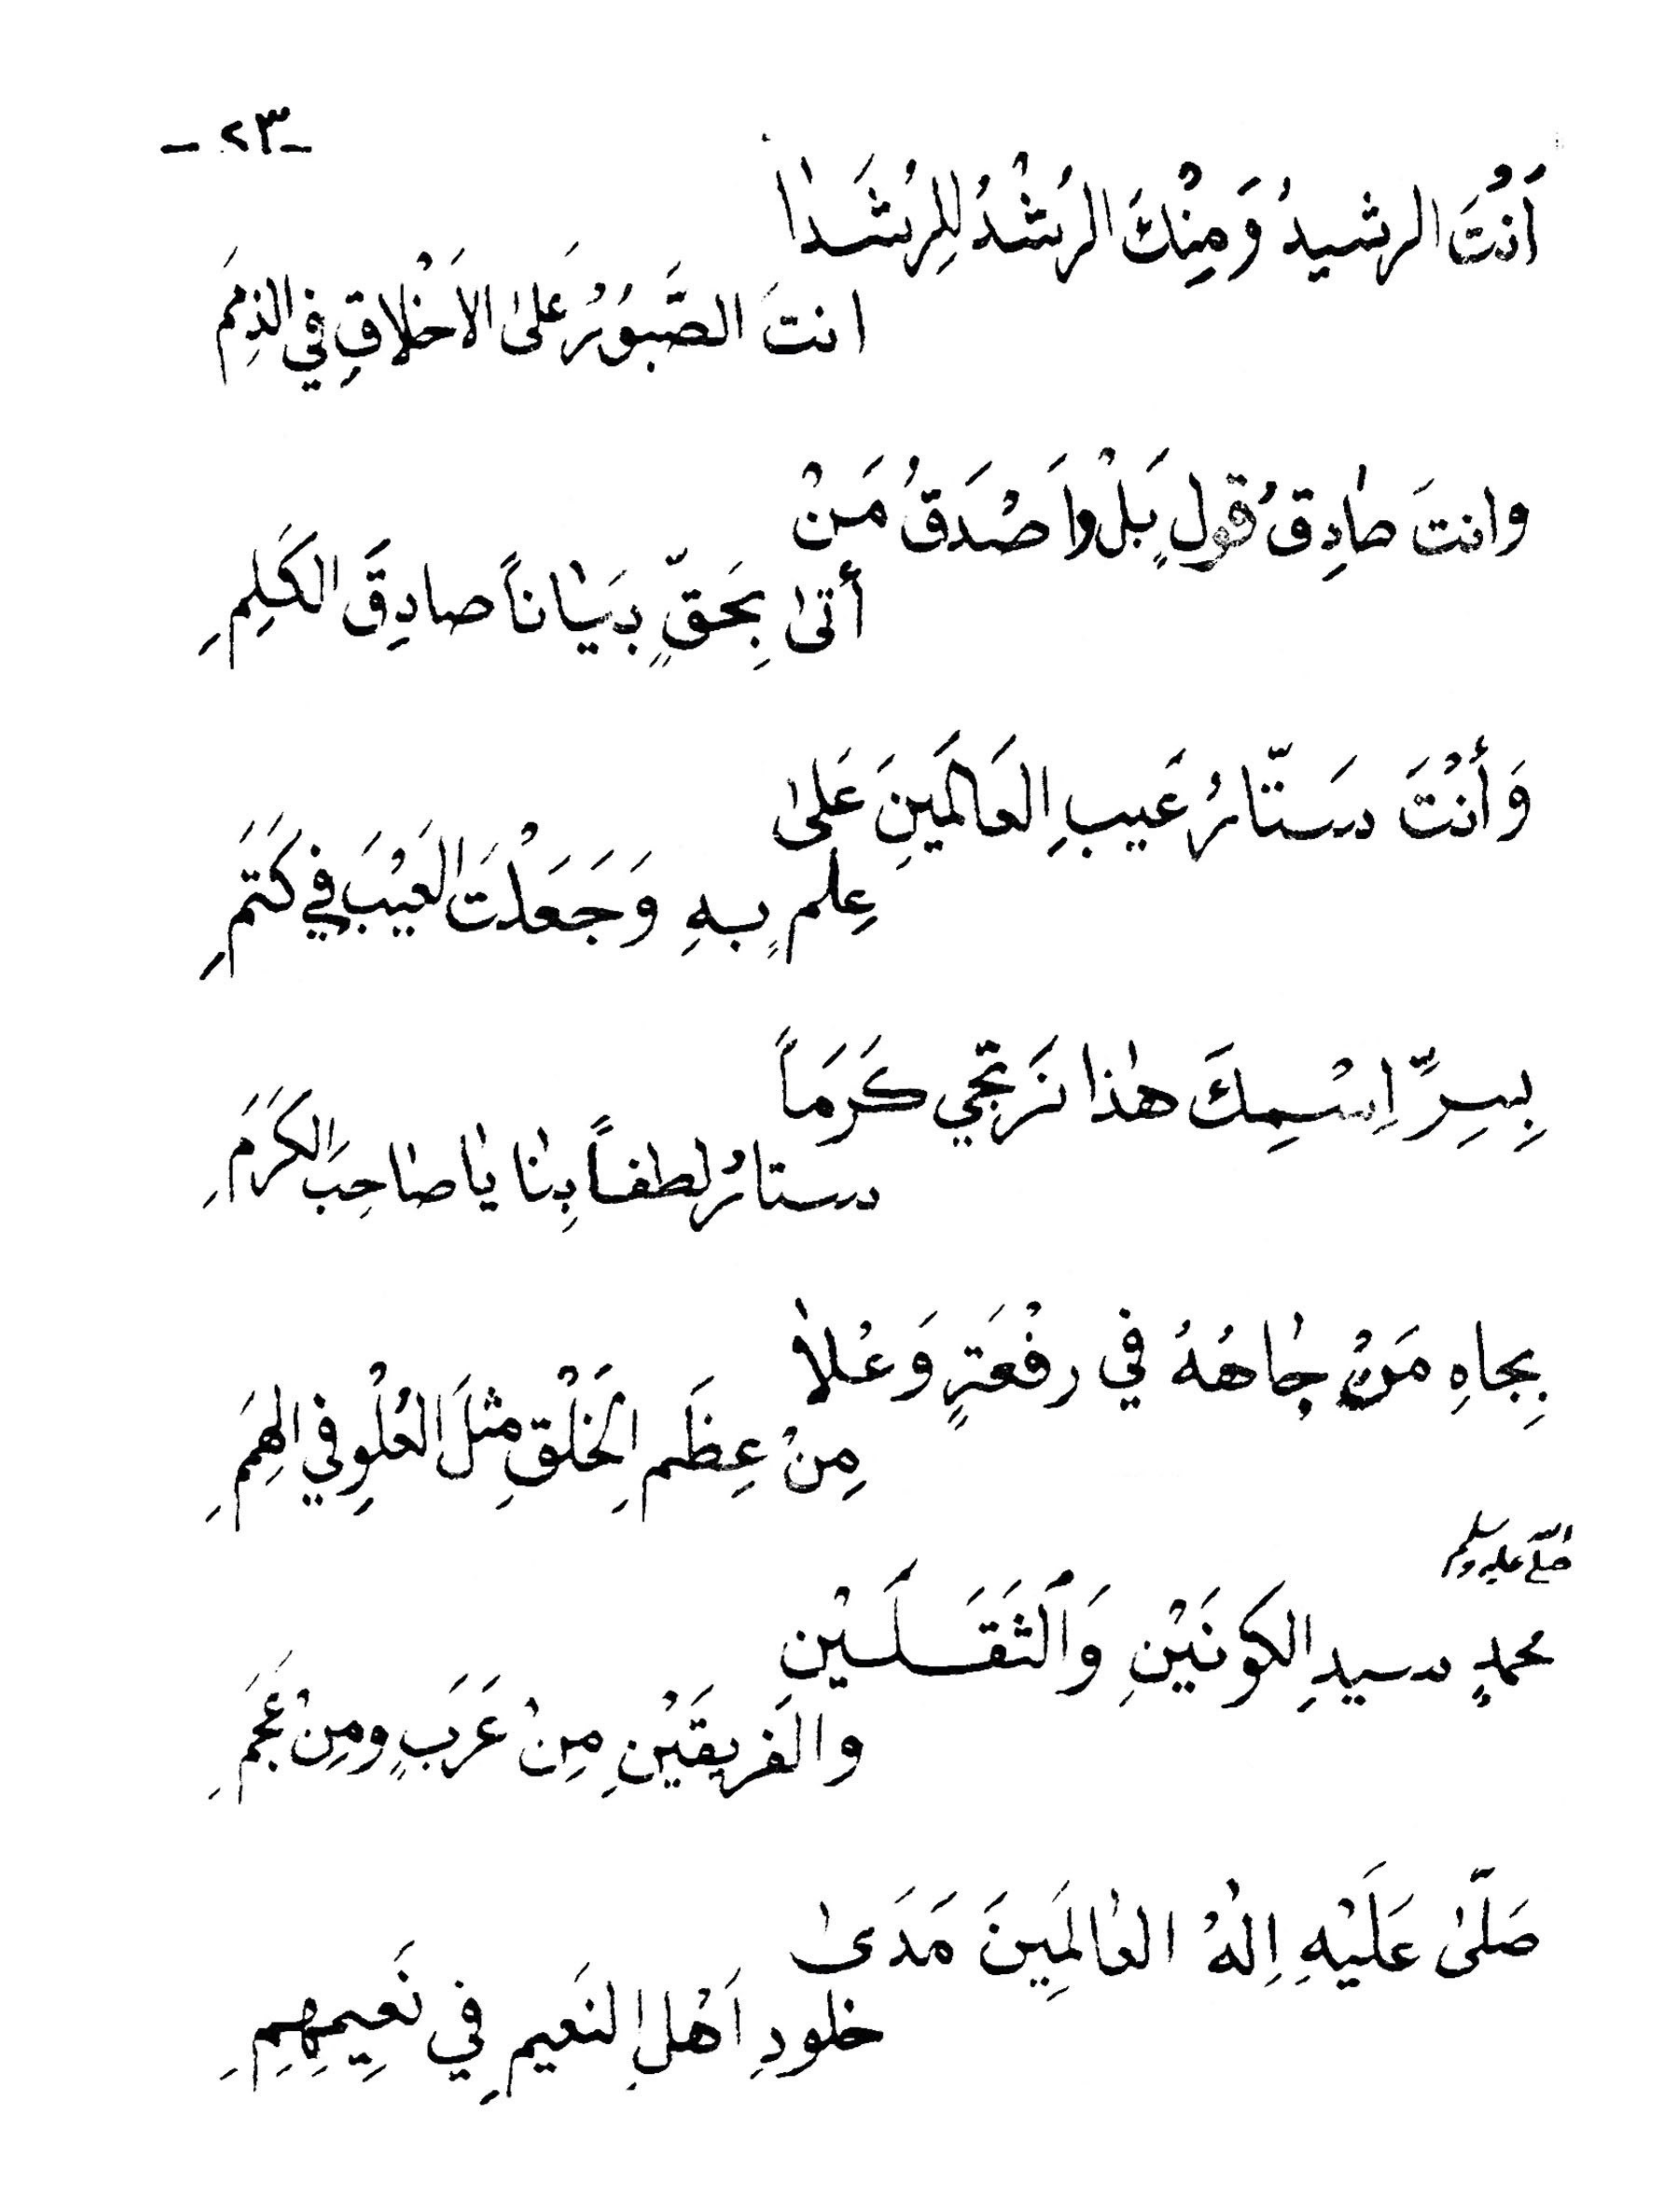 -٢٣-
أَنْتَ الرشيدُ وَمِنْكَ الرُشْدُ لِلرُشَدٰا
انتَ الصَّبُوْرُ عَلىٰ الاَخْلاقِ فِي الذِمَمِ
وانتَ صٰادِقُ قولٍ بَلْ وَاَصْدَقُ مَنْ
أَتىٰ بِحَقٍّ بَيٰاناً صادِقَ الكَلِمِ
وَأَنْتَ سَتّارُ عَيبِ العَالَمَينَ عَلىٰ
عِلمٍ بهِ وَجَعَلْتَ العَيْبَ في كَتَمِ
بِسِرِّ اِسْمِكَ هٰذا نَرتَجي كَرَمَاً
ستارُ لطفاً بِنٰا يٰا صٰاحِبَ الكَرَمِ
بِجاهِ مَنْ جٰاهُهُ في رفْعَةٍ وَعُلاٰ
مِنْ عِظَمِ الخَلْقِ مثلَ العُلْوِ في الهِمَمِ
صلى الله عليه وسلم
محمدٍ سيدِ الكَونَيْنِ وَالثَقَلَيْنِ
والفَريقَيْنِ مِنْ عَرَبٍ ومِنْ عَجَمِ
صَلّىٰ عَلَيْهِ اِلٰهُ العٰالَمِينَ مَدَىٰ
خلودِ اَهْلِ النَعيمِ فِي نَعِيمِهِمِ